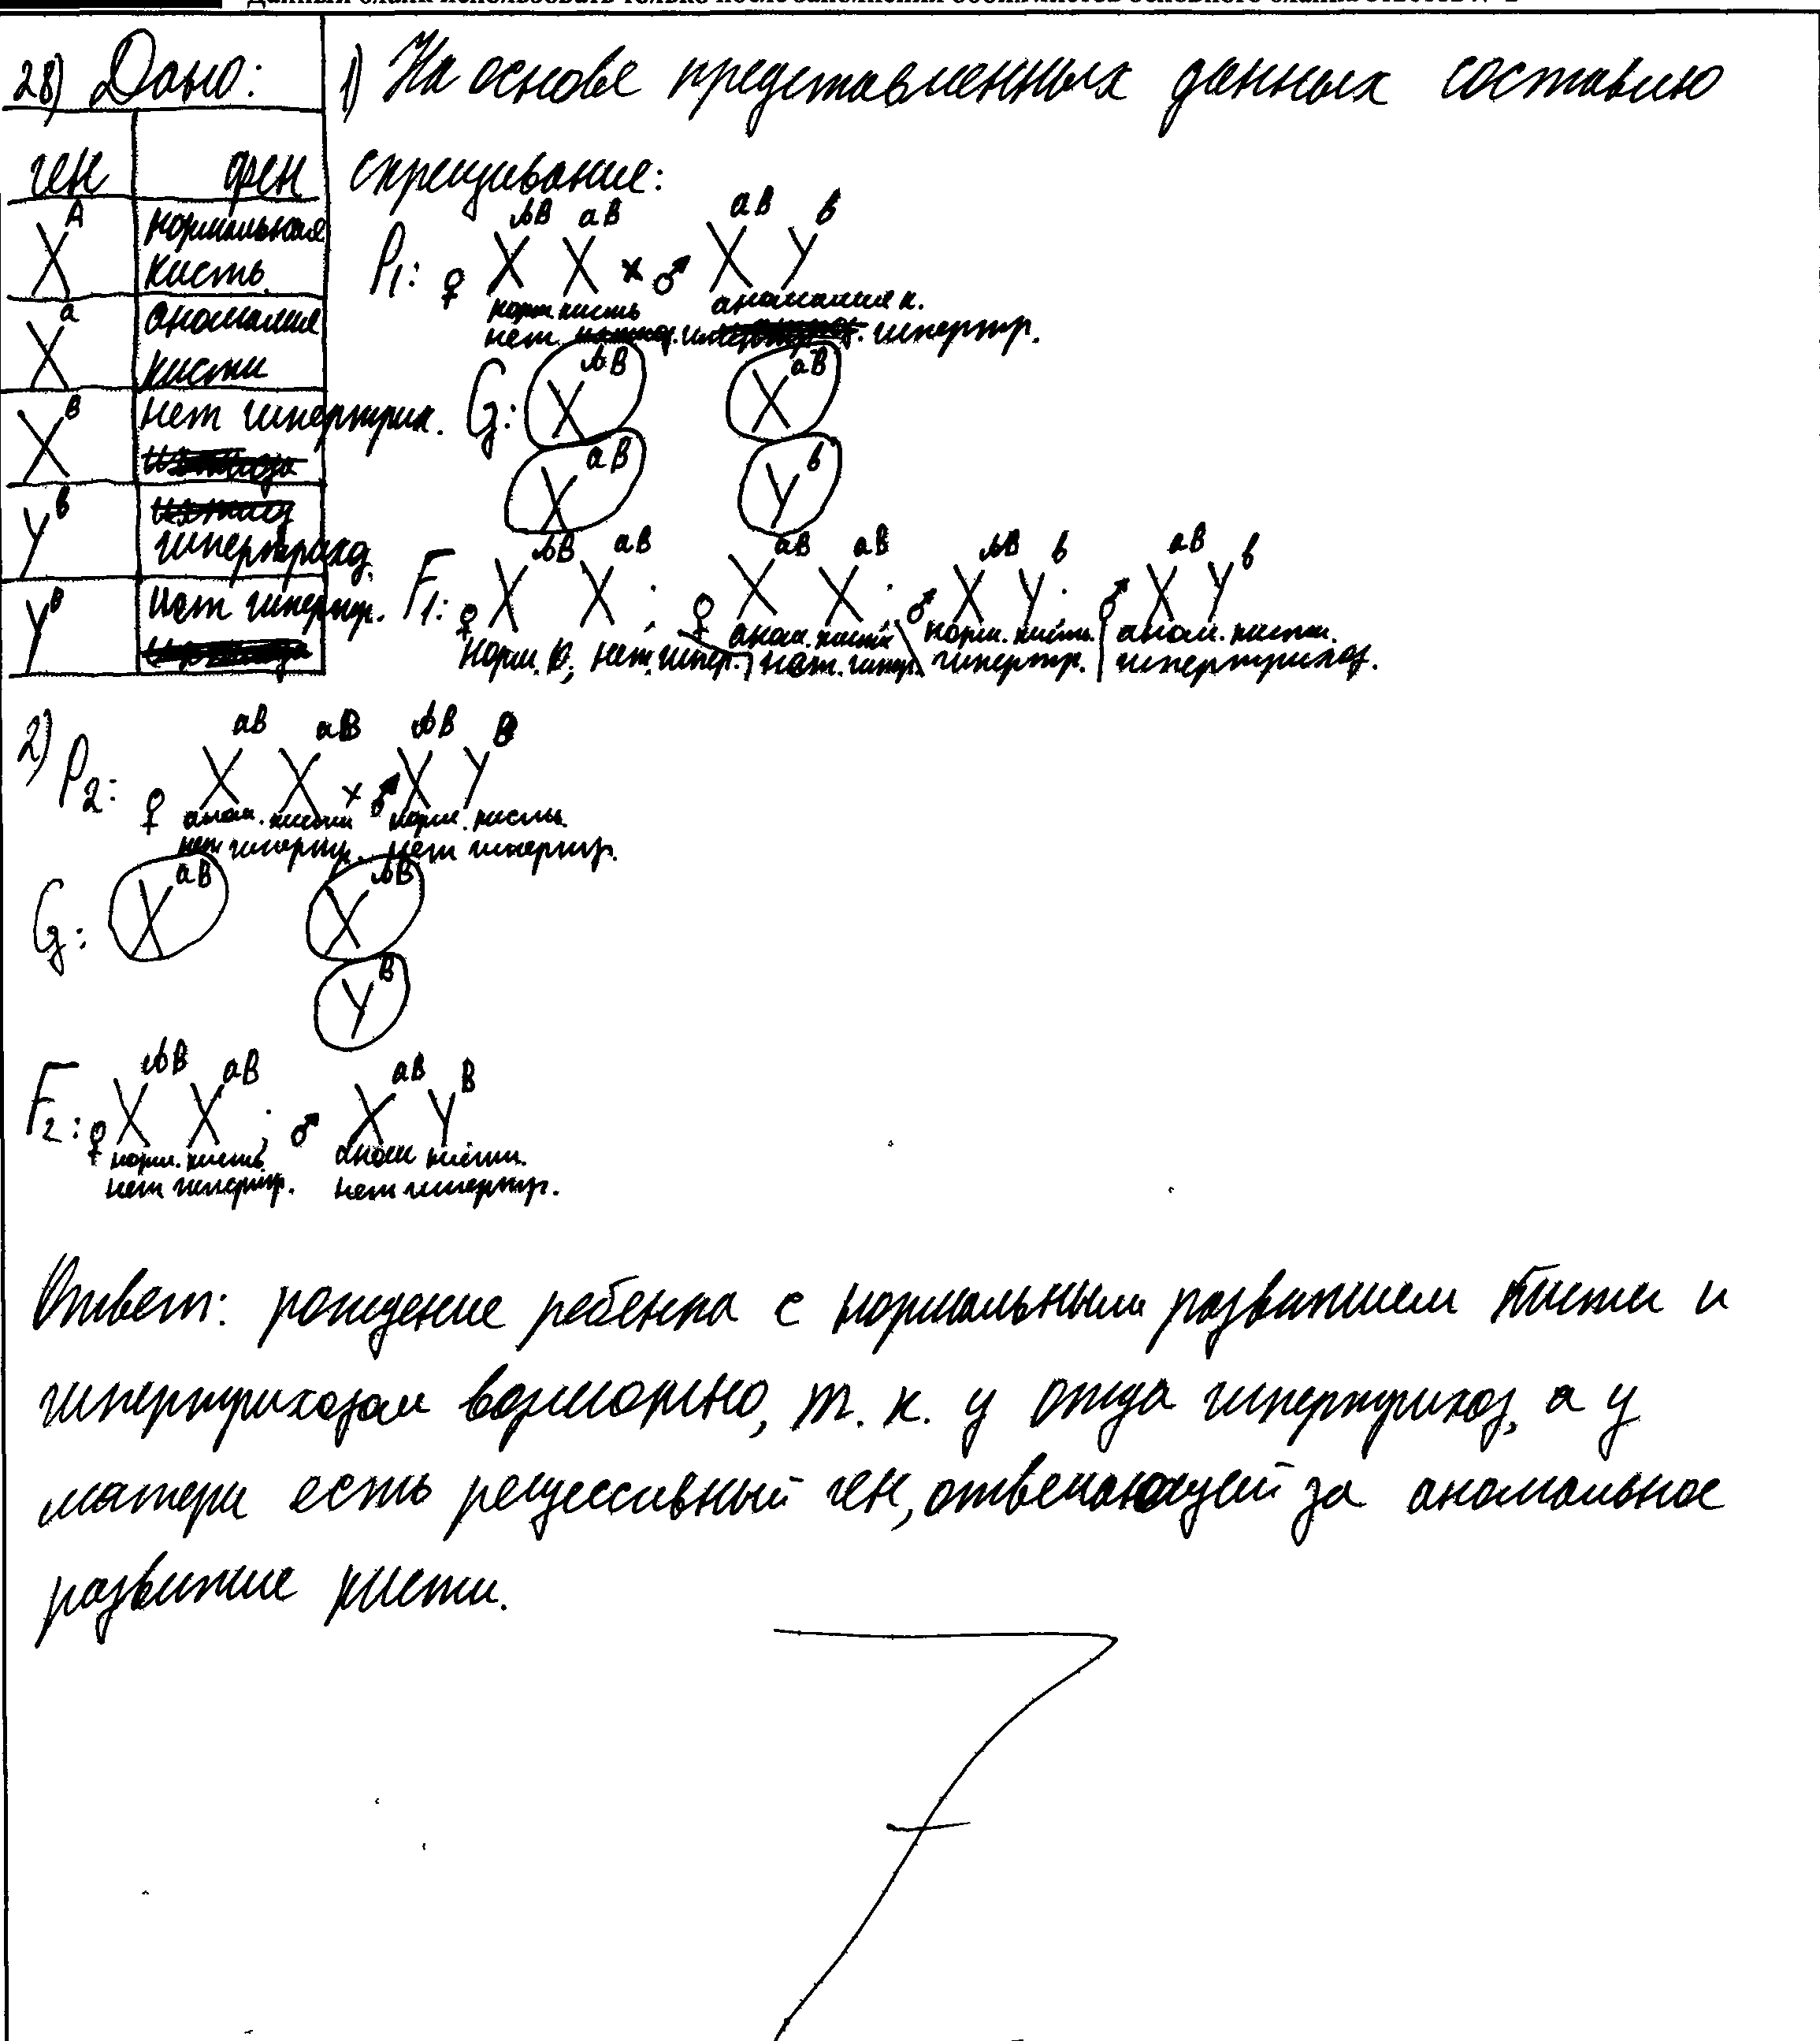 Данный бланк использовать только после заполнения обоих листов основного бланка ответов № 2
28) Дано:
ген фен
X^A нормальная кисть.
X^a аномалия кисти
X^B нет гипертрих.
Y^b гипертрихоз.
Y^B нет гипертр.
1) На основе представленных данных составлю
скрещивание:
P1: ♀ X^AB X^aB × ♂ X^aB Y^b
норм. кисть аномалия к.
нет гипертр.
G: X^AB X^aB
X^aB Y^b
F1: ♀ X^AB X^aB ; ♀ X^aB X^aB ; ♂ X^AB Y^b ; ♂ X^aB Y^b
аном. кисти норм. кисть. аном. кисти.
норм. к, нет гипер. нет. гипер. гипертр. гипертрихоз.
2) P2: ♀ X^aB X^aB × ♂ X^AB Y^B
аном. кисти норм. кисть.
нет гипертр. нет гипертр.
G: X^aB X^AB
Y^B
F2: ♀ X^AB X^aB ; ♂ X^aB Y^B
норм. кисть аном кисти.
нет гипертр. нет гипертр.
Ответ: рождение ребенка с нормальным развитием кисти и
гипертрихозом возможно, т. к. у отца гипертрихоз, а у
матери есть рецессивный ген, отвечающий за аномальное
развитие кисти.